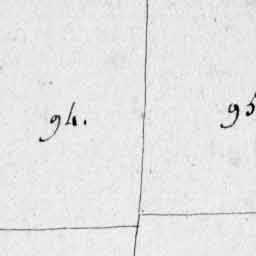 94.
95